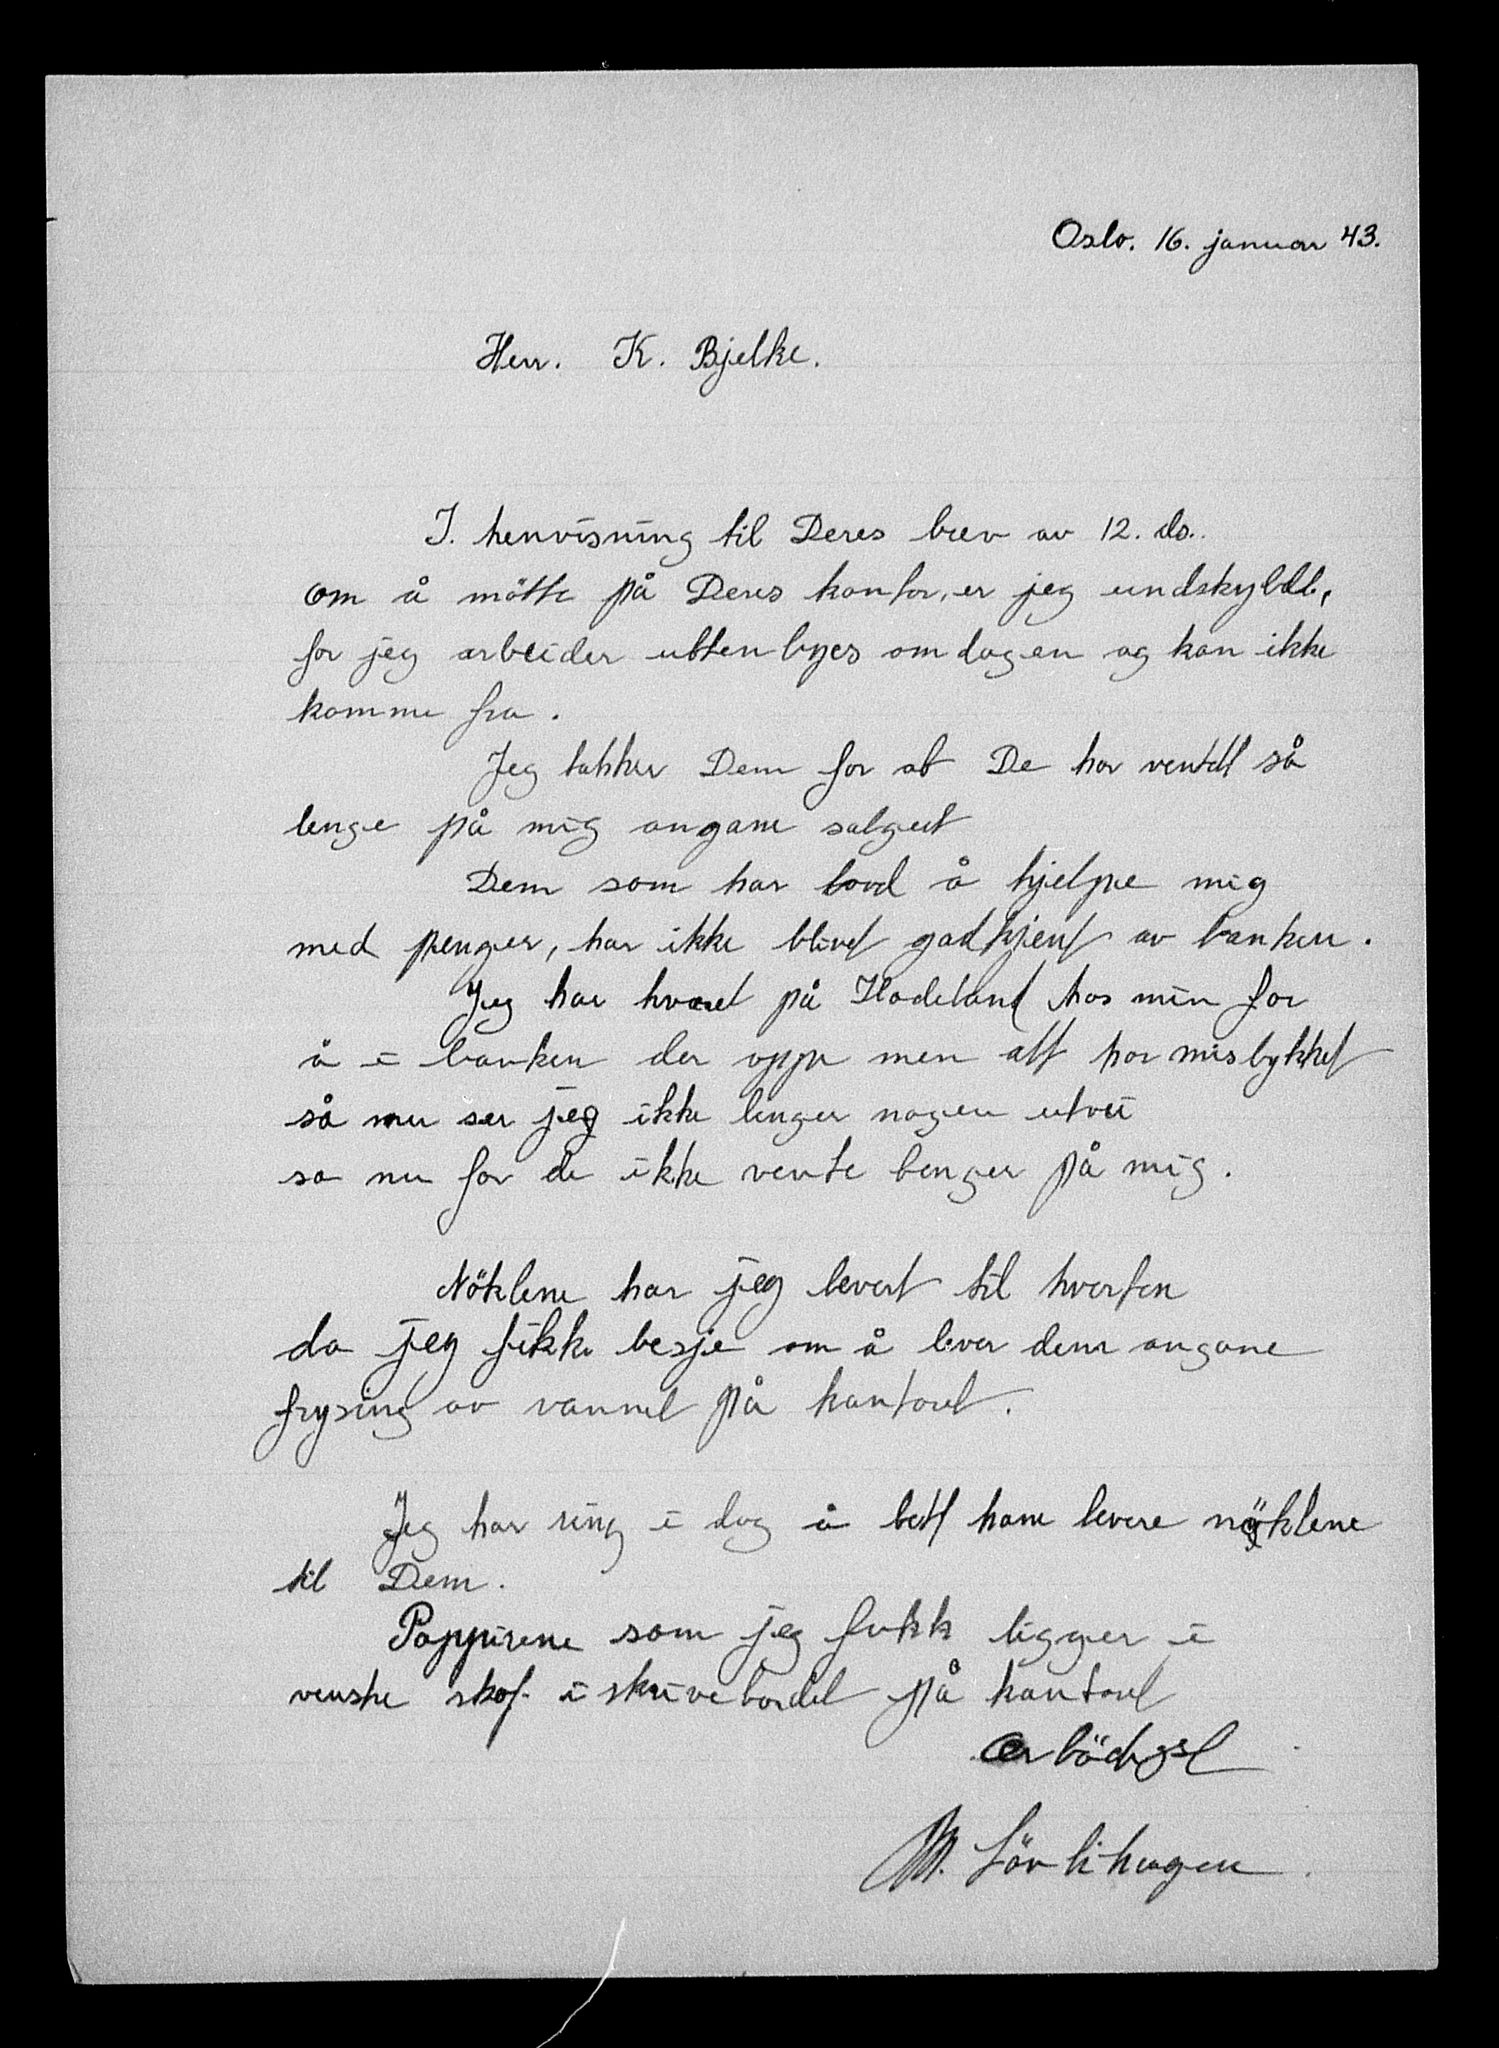 Oslo. 16. januar 43.
Herr. K. Bjelke.
I. henvisning til Deres brev av 12. ds..
om å mötte på Deres kontor, er jeg undskyldt,
for jeg arbeider uttenbyes om dagen og kan ikke
komme fra.
Jeg takker Dem for at De har ventet så
lenge på mig angane salget
Dem som har lovd å hjelpe mig
med penger, har ikke blivet godkjent av banken.
Jeg har hvaret på Hadeland hos min far
å i banken der oppe men alt har mislykket
så nu ser jeg ikke lenger nogen utvei
so nu for de ikke vente lenger på mig.
Nöklene har jeg levert til
da jeg fikk besje om å lever dem angane
frysing av vannet på kontoret.
Jeg har ring i dag å bett ham levere nöklene
til Dem.
Pappirene som jeg fikk ligger i
venske skof. i skrivebordet på kontoret
Erbödigst
M. Lövlihagen.